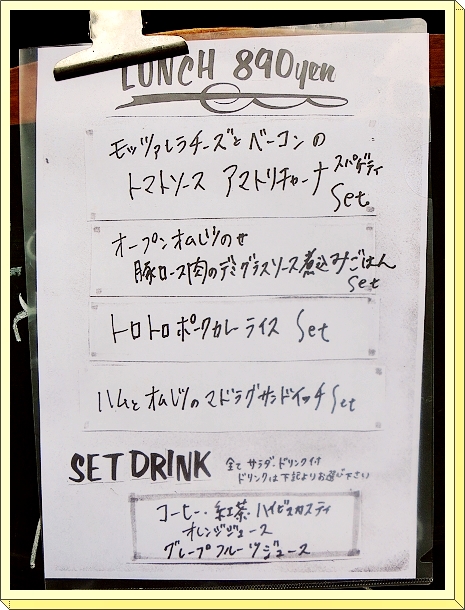 LUNCH 890yen
モッツァレラチーズとベーコンの
トマトソース アマトリチャーナ スパゲティ
Set
オープンオムレツのせ
豚ロース肉のデミグラスソース煮込みごはん
Set
トロトロポークカレーライス Set
ハムとオムレツのマドラグサンドイッチ Set
SET DRINK
全てサラダ・ドリンク付
ドリンクは下記よりお選び下さい
コーヒー・紅茶・ハイビスカスティ
オレンジジュース
グレープフルーツジュース